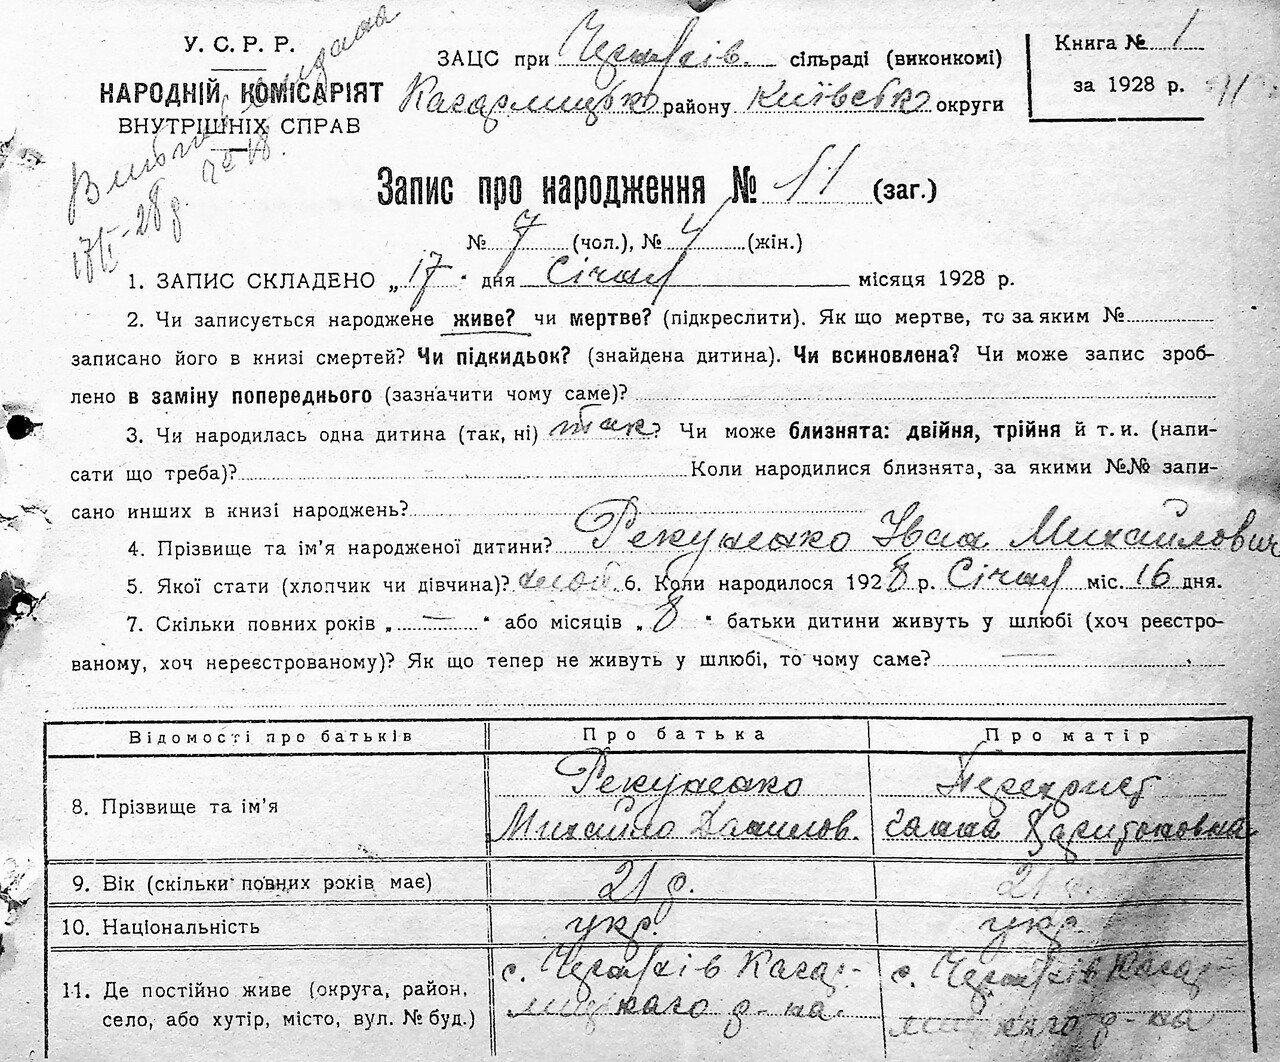 У. С. Р. Р.
НАРОДНІЙ КОМІСАРІЯТ
ВНУТРІШНІХ СПРАВ
17/I-28 р.
ЗАЦС при сільраді (виконкомі)
Кагарлицько району Київсько округи
Книга № 1
за 1928 р.
11
Запис про народження № 11 (заг.)
№ 7 (чол.), № 4 (жін.)
1. ЗАПИС СКЛАДЕНО „17" дня Січня місяця 1928 р.
2. Чи записується народжене живе? чи мертве? (підкреслити). Як що мертве, то за яким №
записано його в книзі смертей? Чи підкидьок? (знайдена дитина). Чи всиновлена? Чи може запис зроб-
лено в заміну попереднього (зазначити чому саме)?
3. Чи народилась одна дитина (так, ні) так? Чи може близнята: двійня, трійня й т. и. (напи-
сати що треба)? Коли народилися близнята, за якими №№ запи-
сано инших в книзі народжень?
4. Прізвище та ім'я народженої дитини? Рекуненко Іван Михайлович
5. Якої стати (хлопчик чи дівчина)? 6. Коли народилося 1928 р. Січня міс. 16 дня.
7. Скільки повних років „ — " або місяців „ 8 " батьки дитини живуть у шлюбі (хоч реєстро-
ваному, хоч нереєстрованому)? Як що тепер не живуть у шлюбі, то чому саме? —
Відомості про батьків Про батька Про матір
8. Прізвище та ім'я
Рекуненко
Михайло Данилов.
Перехрист
Ганна Харитоновна
9. Вік (скільки повних років має) 21 р. 21 р.
10. Національність укр. укр.
11. Де постійно живе (округа, район,
село, або хутір, місто, вул. № буд.)
с. Кагар-
лицкаго р-на
с. Кагар-
лицкаго р-на